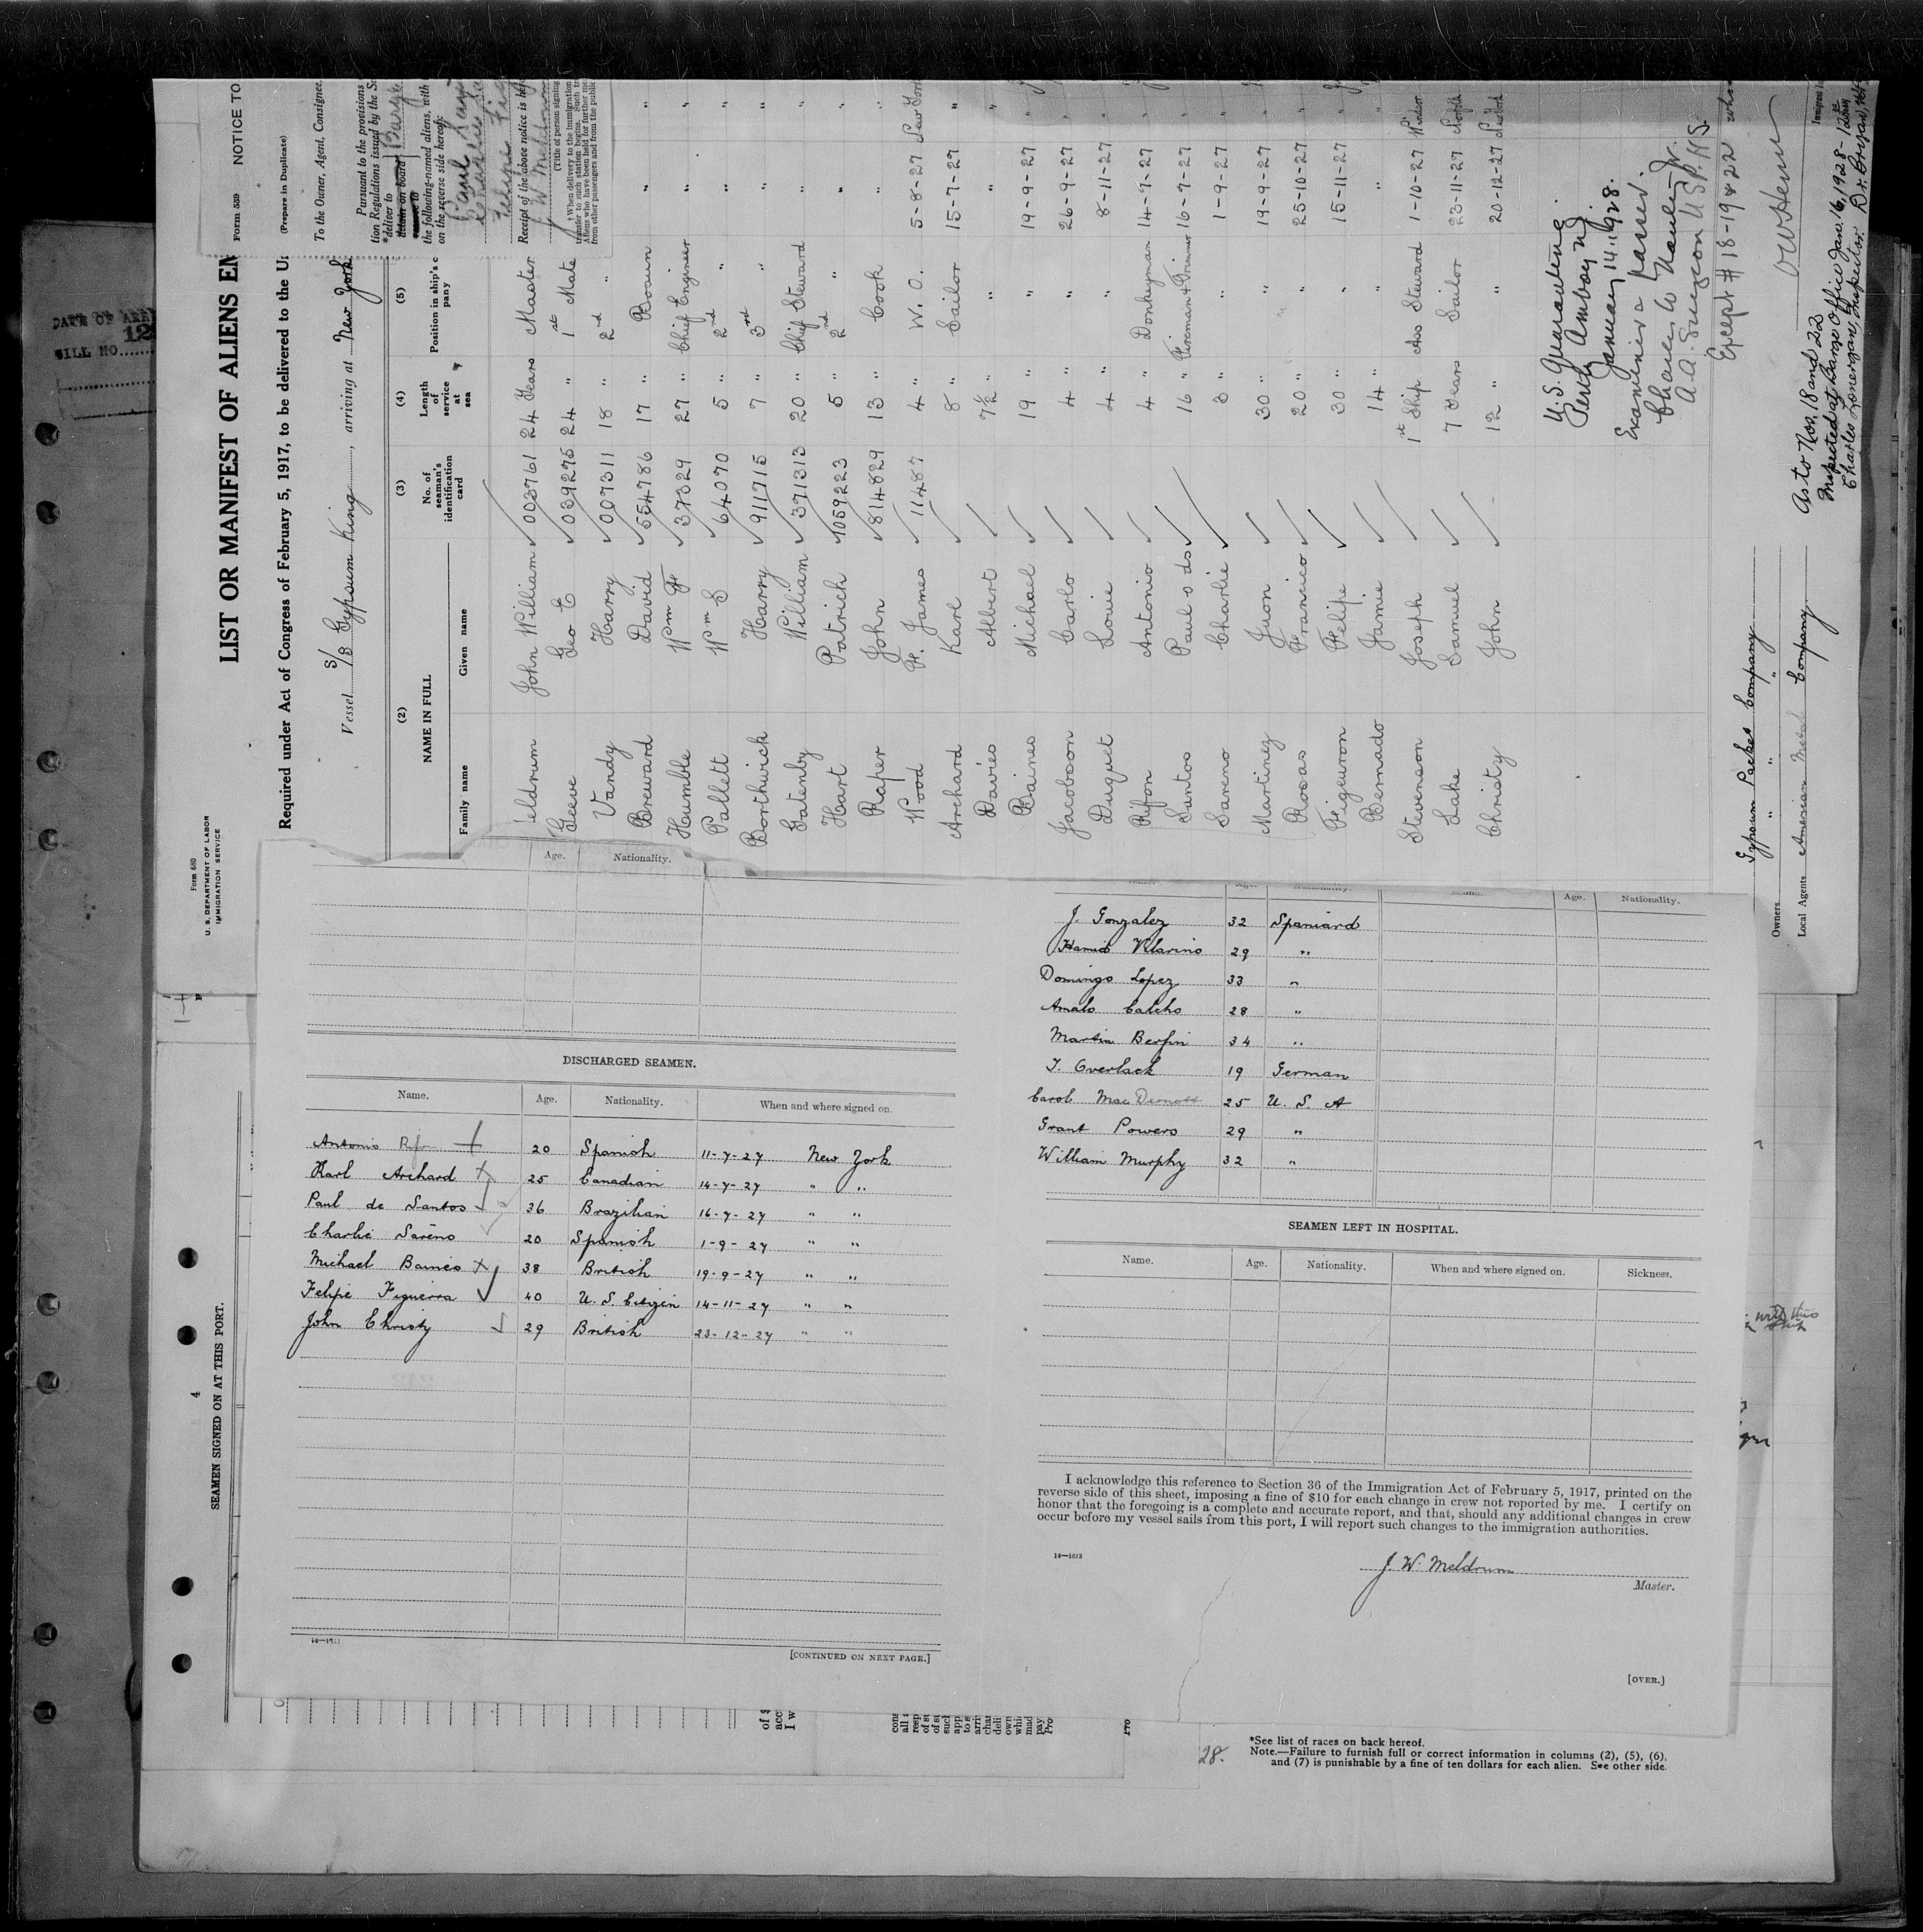 Form 680
U. S. DEPARTMENT OF LABOR
IMMIGRATION SERVICE
LIST OR MANIFEST OF ALIENS EM
Required under Act of Congress of February 5, 1917, to be delivered to the U
Vessel S/S Gypsum King, arriving at New York
(2) (3) (4) (5)
NAME IN FULL No. of seaman's identification card Length of service at sea Position in ship's c pany
Family name Given name
eldrum John William 003761 24 Years Master
Geeve Geo E 039275 24 " 1st Mate
Vandy Harry 007311 18 " 2nd "
Breward David 554786 17 " Bosun " "
Humble Wm F 37329 27 " Chief Engineer " "
Pallett Wm S 64070 5 " 2nd " " "
Borthwick Harry 911715 7 " 3rd " " "
Gatenby William 371313 20 " Chief Steward " "
Hart Patrick 1059223 5 " 2nd " " "
Raper John 814829 13 " Cook " "
Wood H. James 11487 4 " W. O. 5-8-27 New York
Archard Karl 8 " Sailor 15-7-27 "
Davies Albert 7½ " " " "
Baines Michael 19 " " 19-9-27 "
Jacobson Carlo 4 " " 26-9-27 "
Duquet Louie 4 " " 8-11-27 "
Rifon Antonio 4 " Donkeyman 14-7-27 "
Santos Paul o ds 16 " Fireman & Trimmer 16-7-27 "
Sareno Charlie 3 " " 1-9-27 "
Martinez Juon 30 " " 19-9-27 "
Rosas Francisco 20 " " 25-10-27 "
Figeuron Felipe 30 " " 15-11-27 "
Bernado Jamie 14 " " " "
Stevenson Joseph 1st Ship Ass Steward 1-10-27 Windsor
Lake Samuel 7 Years Sailor 23-11-27 Norfolk
Christy John 12 " " 20-12-27
U.S. Quarantine
Perth Amboy NJ
January 14, 1928.
Examined & passed.
A.A. Surgeon U.S.P.H.S.
Except # 18-19 & 22
As to Nos. 18 and 22
Inspected at Barge Office Jan. 16, 1928-
Charles Lonergan, Inspector.
Owners Gypsum Packet Company
" " "
Local Agents American Company
Form 539 NOTICE TO
(Prepare in Duplicate)
To the Owner, Agent, Consignee,
Pursuant to the provisions
tion Regulations issued by the Se
*deliver to
detain on board Barge
the following-named aliens, with
on the reverse side hereof:
Paul
Felipe Fig
Receipt of the above notice is he
J W Meldrum
(Title of person signing
† When delivery to the immigration
transfer to such station begins. Such tr
Aliens who have been held for further me
from other passengers and from the public
DATE OF ARR
BILL NO.
Age. Nationality.
DISCHARGED SEAMEN.
Name. Age. Nationality. When and where signed on.
Antonio Rifon 20 Spanish 11-7-27 New York
Karl Archard 25 Canadian 14-7-27 " "
Paul de Santos 36 Brazilian 16-7-27 " "
Charlie Sareno 20 Spanish 1-9-27 " "
Michael Baines 38 British 19-9-27 " "
Felipe Figuerra 40 U. S. Citizen 14-11-27 " "
John Christy 29 British 23-12-27 " "
[CONTINUED ON NEXT PAGE.]
Age. Nationality.
J. Gonzalez 32 Spaniard
Hamio Vilarino 29 "
Domingo Lopez 33 "
Amalo Calcho 28 "
Martin Berfin 34 "
T. Overlack 19 German
Carol MacDermott 25 U. S. A
Grant Powers 29 "
William Murphy 32 "
SEAMEN LEFT IN HOSPITAL.
Name. Age. Nationality. When and where signed on. Sickness.
I acknowledge this reference to Section 36 of the Immigration Act of February 5, 1917, printed on the
reverse side of this sheet, imposing a fine of $10 for each change in crew not reported by me. I certify on
honor that the foregoing is a complete and accurate report, and that, should any additional changes in crew
occur before my vessel sails from this port, I will report such changes to the immigration authorities.
14—1613
J. W. Meldrum
Master.
[OVER.]
4
SEAMEN SIGNED ON AT THIS PORT.
28.
*See list of races on back hereof.
Note.—Failure to furnish full or correct information in columns (2), (5), (6),
and (7) is punishable by a fine of ten dollars for each alien. See other side.